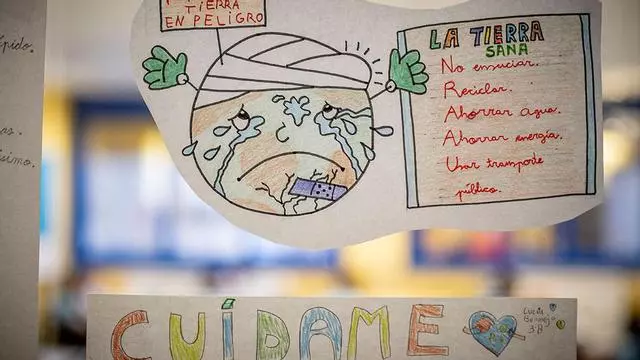 TIERRA
EN PELIGRO
pido.
simo.
LA TIERRA
SANA
No ensuciar.
Reciclar.
Ahorrar agua.
Ahorrar energía.
Usar transporte
público.
CUÍDAME
Lucía
3ºB